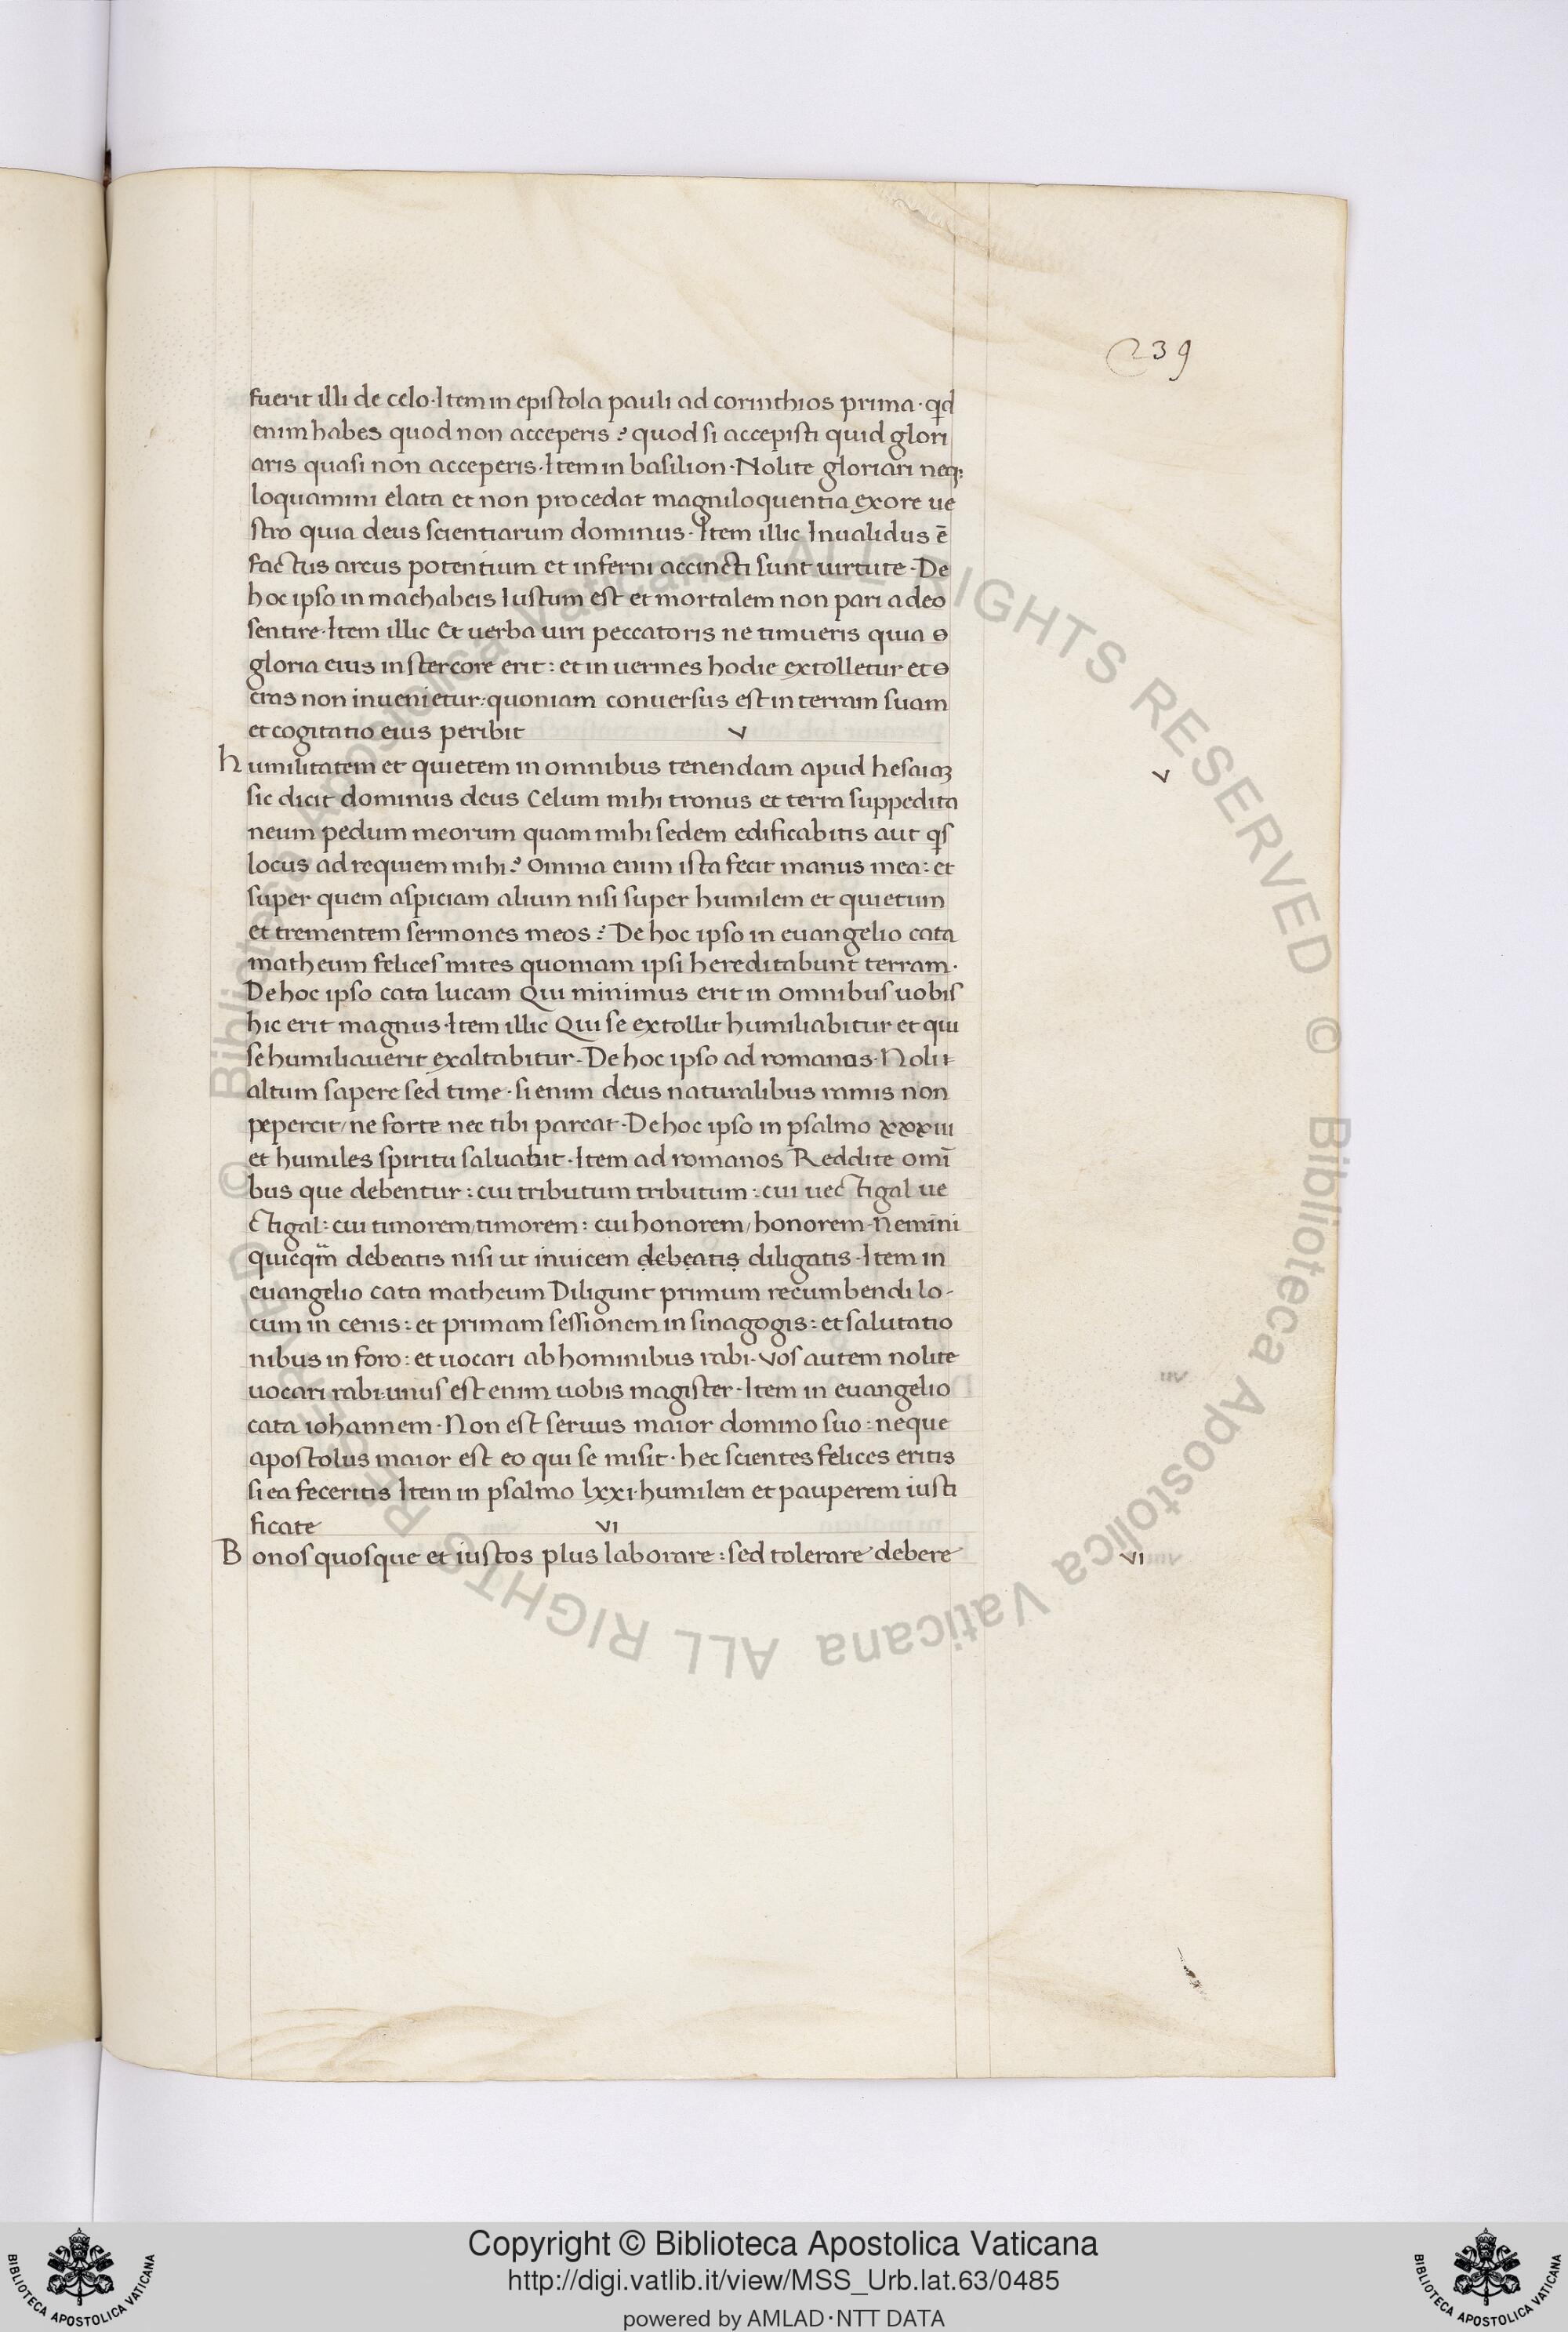 239
fuerit illi de celo · Item in epistola pauli ad corinthios prima · qd
enim habes quod non acceperis ? quod si accepisti quid glori
aris quasi non acceperis · Item in basilion · Nolite gloriari neq;
loquamini elata et non procedat magniloquentia ex ore ue
stro quia deus scientiarum dominus · Item illic Inualidus ē
factus arcus potentium et infermi accincti sunt uirtute · De
hoc ipso in machabeis Iustum est et mortalem non pari a deo
sentire · Item illic Et uerba uiri peccatoris ne timueris quia
gloria eius in stercore erit : et in uermes hodie extolletur et
cras non inuenietur : quoniam conuersus est in terram suam
et cogitatio eius peribit v
humilitatem et quietem in omnibus tenendam apud hesaiaȝ v
sic dicit dominus deus Celum mihi tronus et terra suppedita
neum pedum meorum quam mihi sedem edificabitis aut qs
locus ad requiem mihi ? Omnia enim ista fecit manus mea : et
super quem aspiciam alium nisi super humilem et quietum
et trementem sermones meos ? De hoc ipso in euangelio cata
matheum felices mites quoniam ipsi hereditabunt terram ·
De hoc ipso cata lucam Qui minimus erit in omnibus uobis
hic erit magnus · Item illic Qui se extollit humiliabitur et qui
se humiliauerit exaltabitur · De hoc ipso ad romanos · Noli
altum sapere sed time · si enim deus naturalibus ramis non
pepercit / ne forte nec tibi parcat · De hoc ipso in psalmo xxxiii
et humiles spiritu saluabit · Item ad romanos Reddite omī
bus que debentur : cui tributum tributum : cui uectigal ue
ctigal : cui timorem / timorem : cui honorem / honorem · Nemini
quicqm̄ debeatis nisi ut inuicem debeatis diligatis · Item in
euangelio cata matheum Diligunt primum recumbendi lo-
cum in cenis : et primam sessionem in sinagogis : et salutatio
nibus in foro : et uocari ab hominibus rabi · Vos autem nolite
uocari rabi · unus est enim uobis magister · Item in euangelio
cata iohannem · Non est seruus maior domino suo : neque
apostolus maior est eo qui se misit · hec scientes felices eritis
si ea feceritis Item in psalmo lxxxi · humilem et pauperem iusti
ficate vi
Bonos quosque et iustos plus laborare : sed tolerare debere vi
© Biblioteca Apostolica Vaticana ALL RIGHTS RESERVED © Biblioteca Apostolica Vaticana ALL RIGHTS RESERVED
Copyright © Biblioteca Apostolica Vaticana
http://digi.vatlib.it/view/MSS_Urb.lat.63/0485
powered by AMLAD·NTT DATA
BIBLIOTECA APOSTOLICA VATICANA
BIBLIOTECA APOSTOLICA VATICANA